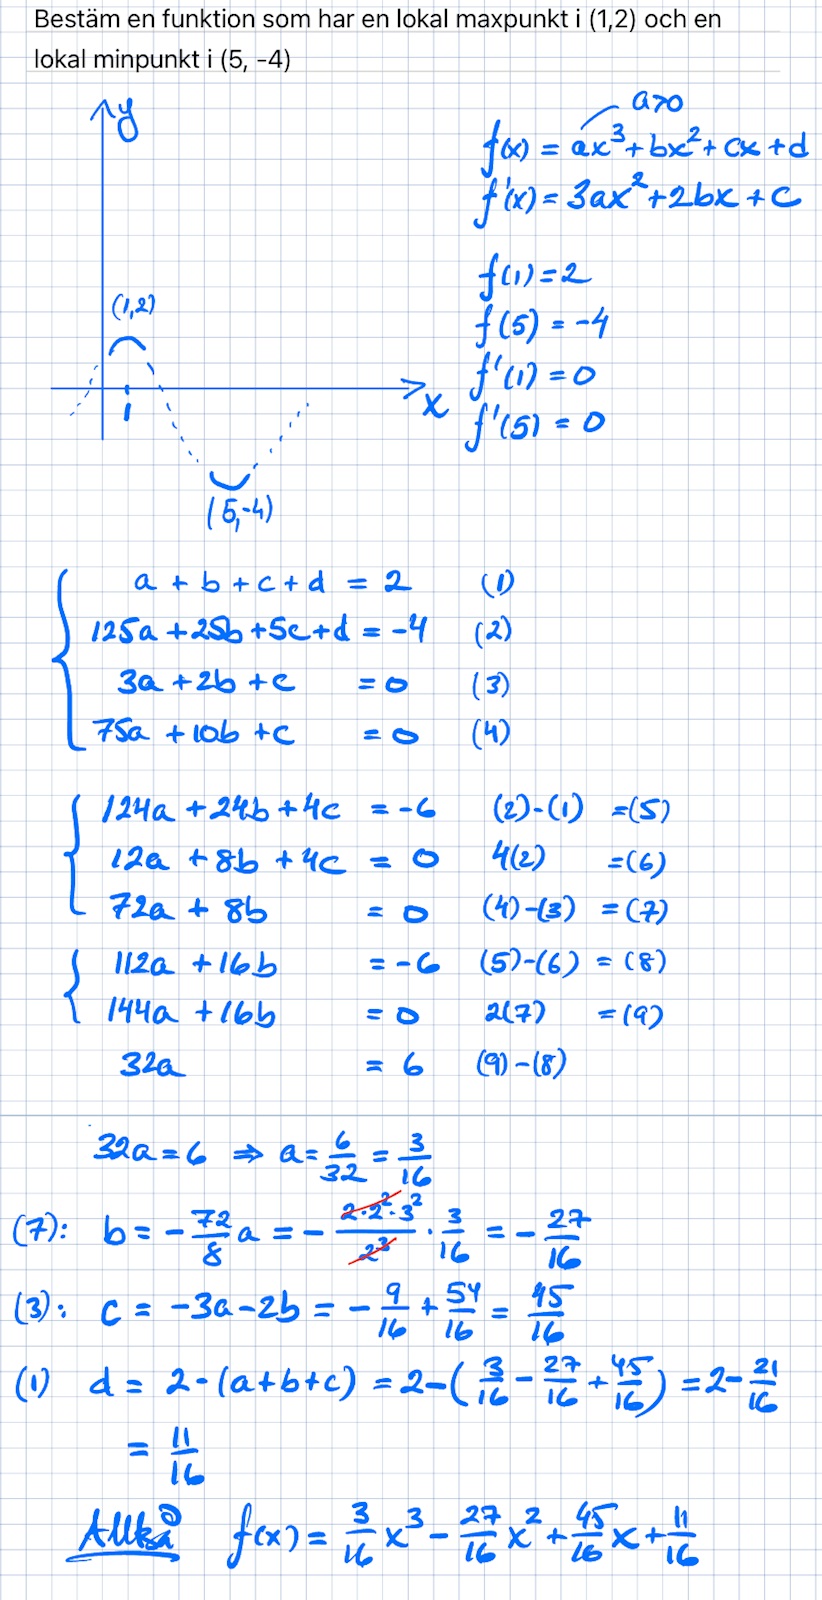 Bestäm en funktion som har en lokal maxpunkt i (1,2) och en
lokal minpunkt i (5, -4)
y
a>0
f(x) = ax³+bx²+cx+d
f'(x) = 3ax²+2bx+c
f(1)=2
(1,2)
f(5) = -4
f'(1) = 0
x
1
f'(5) = 0
(5,-4)
a + b + c + d = 2 (1)
125a +25b +5c+d = -4 (2)
3a +2b +c = 0 (3)
75a +10b +c = 0 (4)
124a +24b +4c = -6 (2)-(1) =(5)
12a + 8b + 4c = 0 4(2) =(6)
72a + 8b = 0 (4)-(3) = (7)
112a +16b = -6 (5)-(6) = (8)
144a +16b = 0 2(7) =(9)
32a = 6 (9)-(8)
32a = 6 ⇒ a= 6/32 = 3/16
(7): b = - 72/8 a = - 2·2²·3²/2³ · 3/16 = - 27/16
(3): c = -3a-2b = - 9/16 + 54/16 = 45/16
(1) d = 2-(a+b+c) = 2-( 3/16 - 27/16 + 45/16 ) = 2- 21/16
= 11/16
Alltså f(x) = 3/16 x³ - 27/16 x² + 45/16 x + 11/16